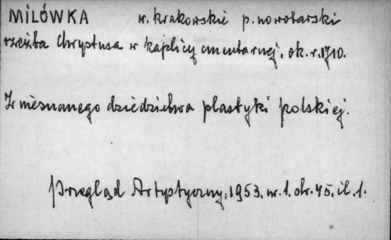 MILÓWKA w. krakowskie p. nowotarski
rzeźba Chrystusa w kaplicy cmentarnej, ok. r. 1710.
Z nieznanego dziedzictwa plastyki polskiej.
Przegląd Artystyczny, 1953, nr. 1. str. 45, il. 1.